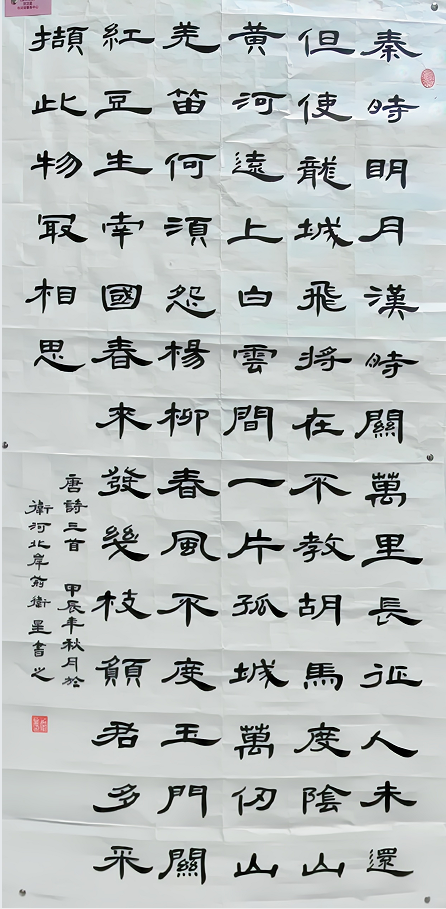 秦時明月漢時關萬里長征人未還
但使龍城飛將在不教胡馬度陰山
黃河遠上白雲間一片孤城萬仞山
羌笛何須怨楊柳春風不度玉門關
紅豆生南國春來發幾枝願君多采
擷此物最相思
唐詩三首 甲辰年秋月於
衛河北岸衛星書之